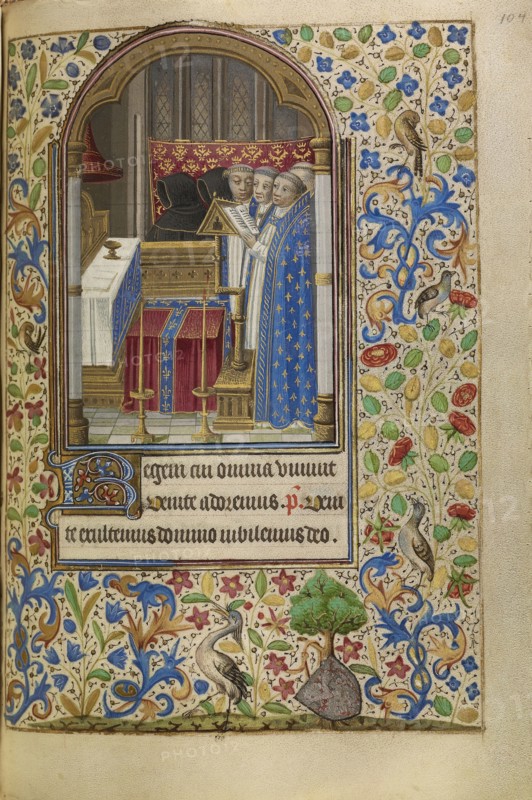 104
Regem cui omnia viuunt
Uenite adoremus. p̄. Ueni
te exultemus domino iubilemus deo.
PHOTO12